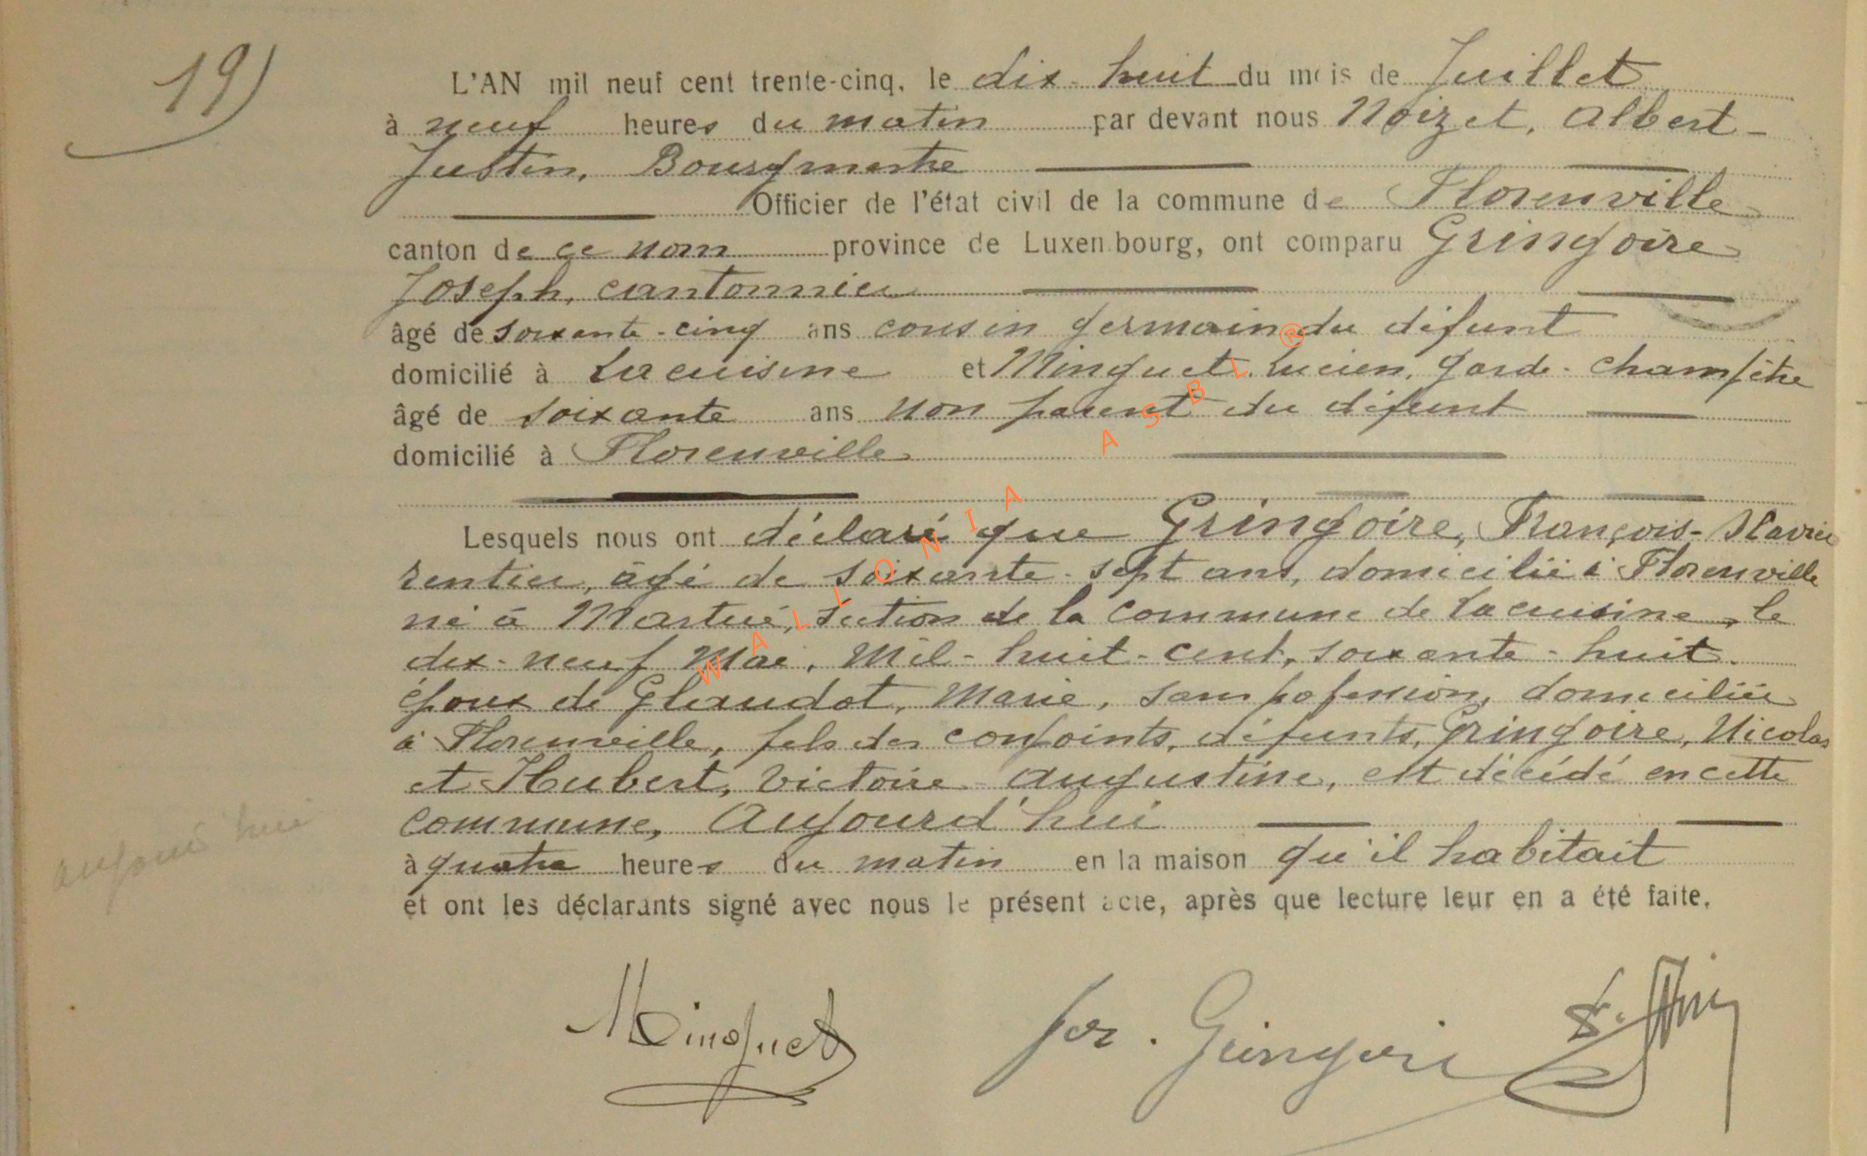 19)
L'AN mil neuf cent trente-cinq, le dix-huit du mois de Juillet
à neuf heures du matin par devant nous Noizet, Albert-
Justin, Bourgmestre
Officier de l'état civil de la commune de Florenville
canton de ce nom province de Luxembourg, ont comparu Gringoire
Joseph, cantonnier
âgé de soixante-cinq ans cousin germain du défunt
domicilié à Lacuisine et Minguet Lucien, garde-champêtre
âgé de soixante ans non parent du défunt
domicilié à Florenville
Lesquels nous ont déclaré que Gringoire, François-Xavier
rentier, âgé de soixante-sept ans, domicilié à Florenville
né à Martué, section de la commune de Lacuisine, le
dix-neuf Mai, Mil-huit-cent, soixante-huit.
époux de Glaudot, Marie, sans profession, domiciliée
à Florenville, fils des conjoints, défunts, Gringoire, Nicolas
et Hubert, Victoire Augustine, est décédé en cette
commune, Aujourd'hui
aujourd'hui
à quatre heures du matin en la maison qu'il habitait
et ont les déclarants signé avec nous le présent acte, après que lecture leur en a été faite.
Minguet Jos. Gringoire
WALLONIA ASBL ®